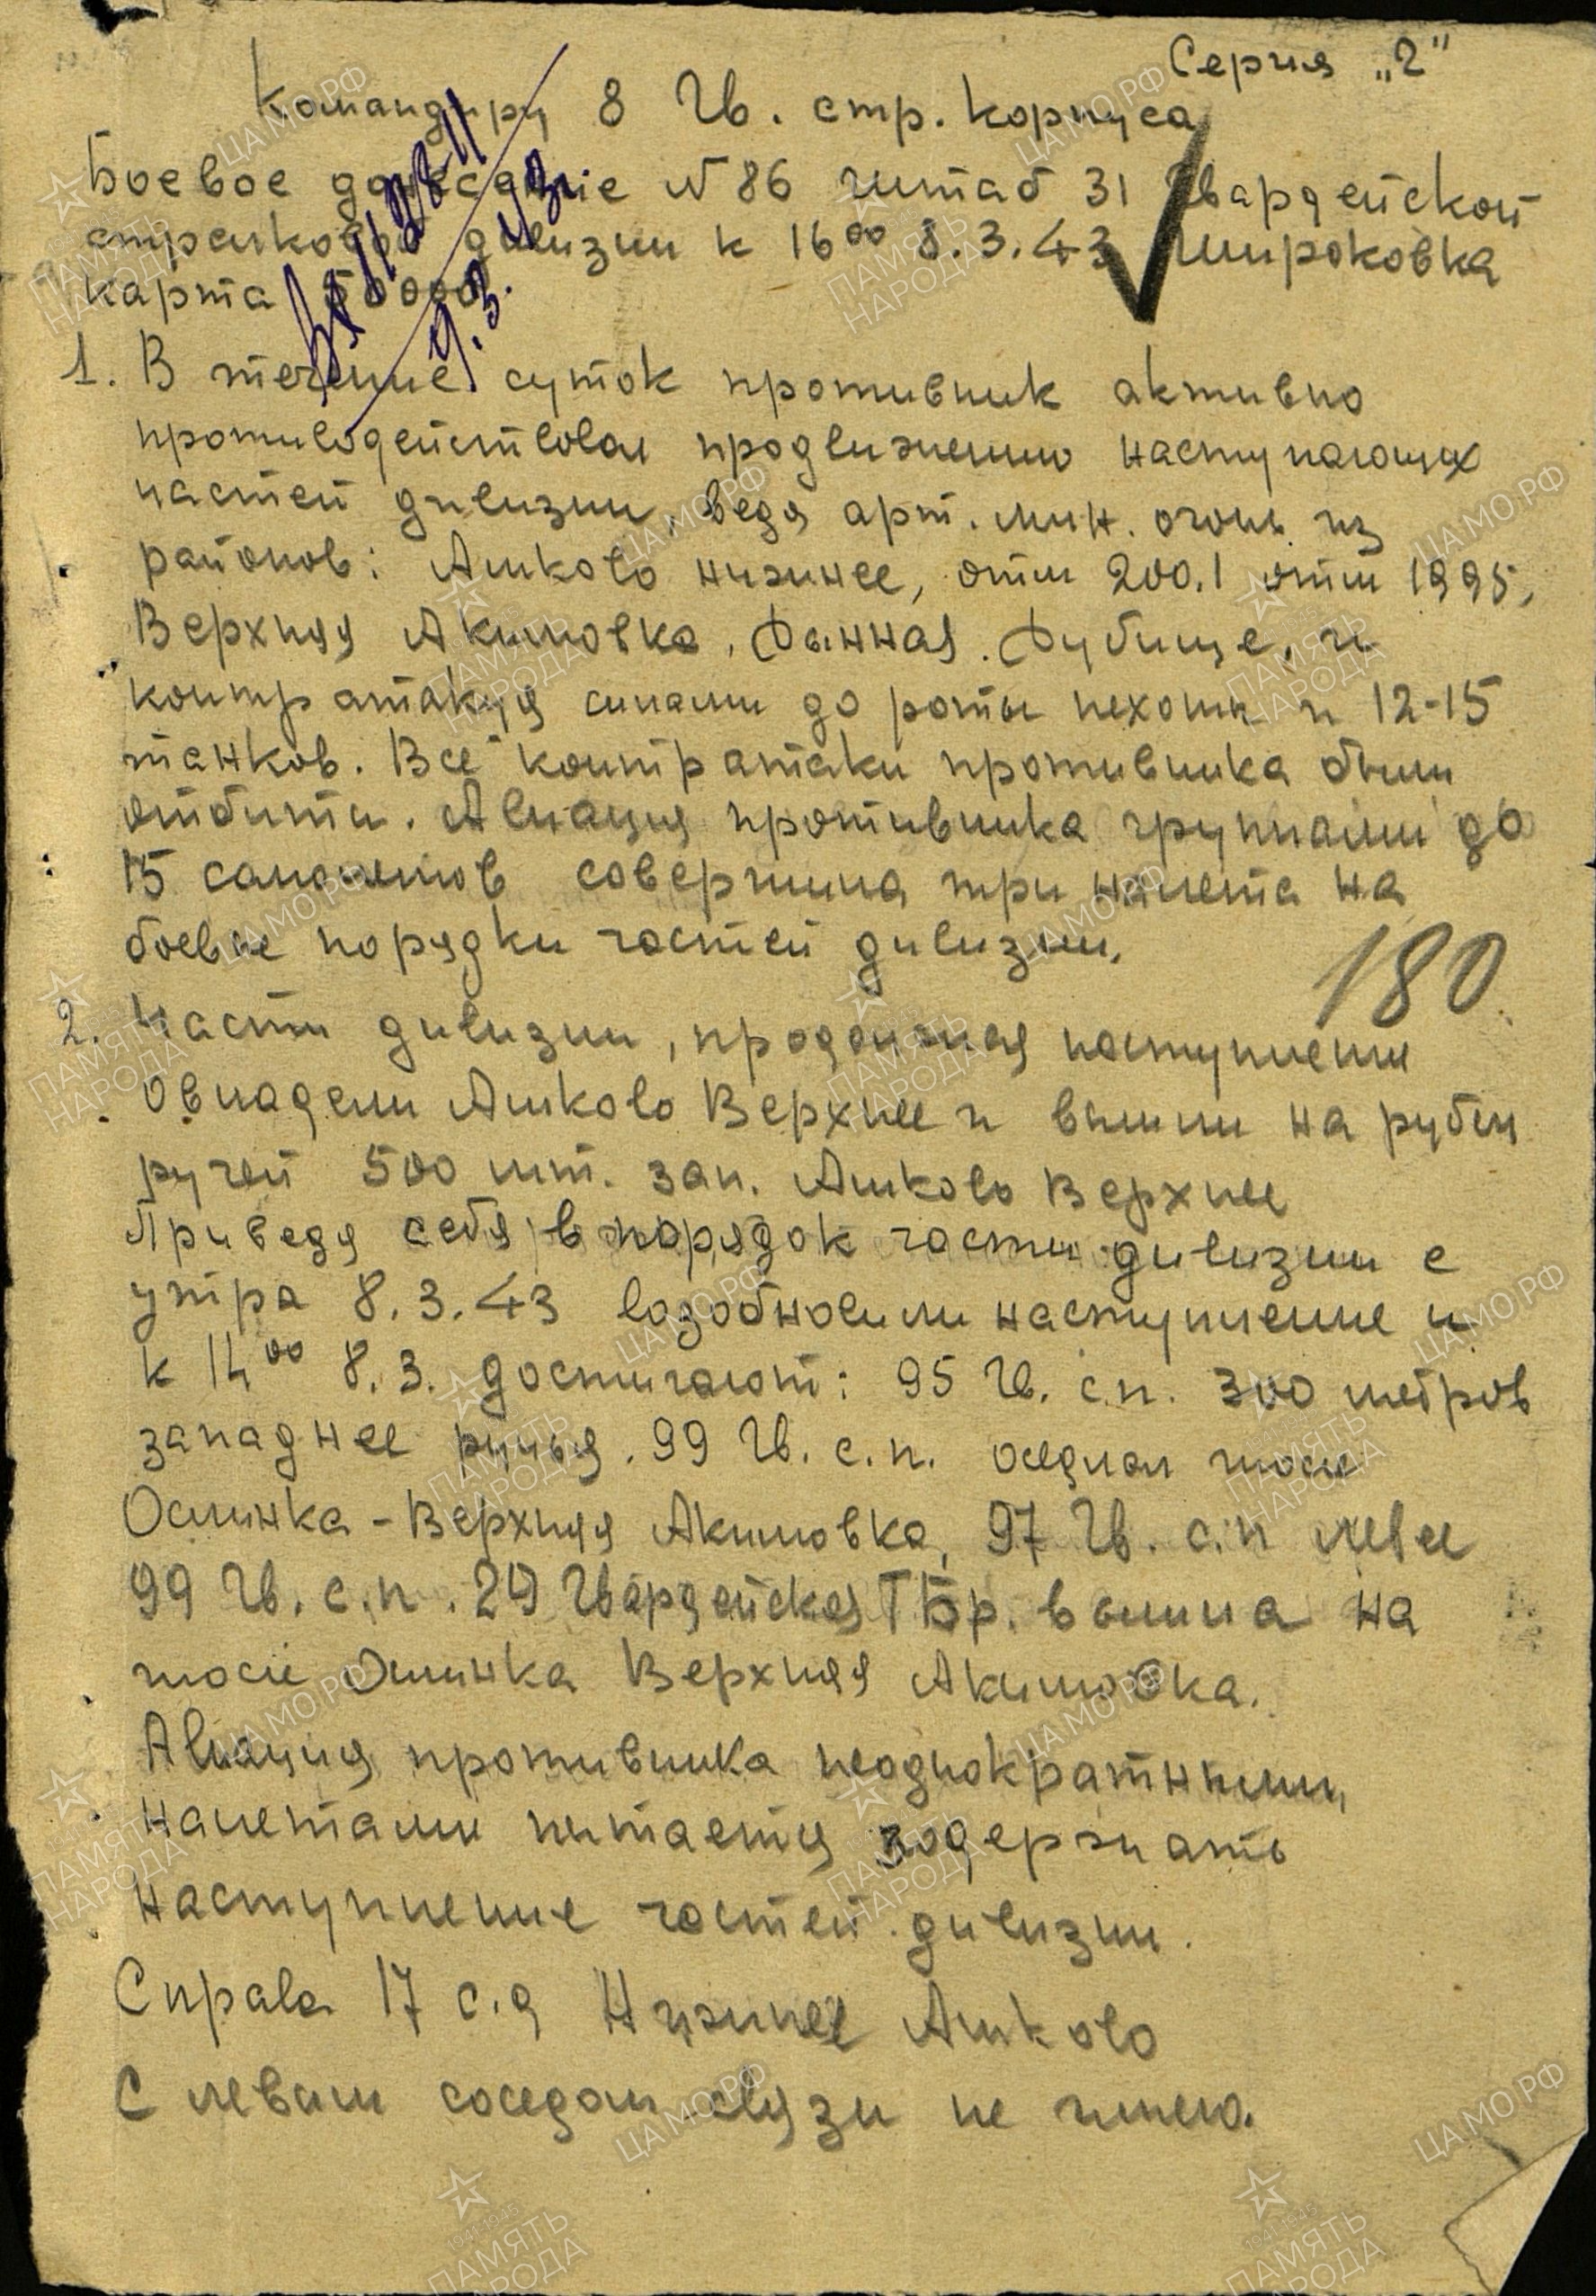 Серия „2"
Командиру 8 Гв. стр. корпуса
Боевое донесение N 86 штаб 31 Гвардейской
стрелковой дивизии к 16⁰⁰ 8.3.43 Широковка
карта 50000
9.3.43
1. В течение суток противник активно
противодействовал продвижению наступающих
частей дивизии, ведя арт. мин. огонь из
районов: Ашково нижнее, отм 200.1 отм 1995,
Верхняя Акимовка, Дынная. Дубище, и
контратакуя силами до роты пехоты и 12-15
танков. Все контратаки противника были
отбиты. Авиация противника группами до
15 самолетов совершила три налета на
боевые порядки частей дивизии.
180
2. Части дивизии, продолжая наступление
овладели Ашково Верхнее и вышли на рубеж
ручей 500 мт. зап. Ашково Верхнее
Приведя себя в порядок части дивизии с
утра 8.3.43 возобновили наступление и
к 14⁰⁰ 8.3. достигают: 95 Гв. с.п. 300 метров
западнее ручья. 99 Гв. с.п. оседлал шосе
Ослинка - Верхняя Акимовка, 97 Гв. с.п левее
99 Гв. с.п. 29 Гвардейская ТБр. вышла на
шосе Ослинка Верхняя Акимовка.
Авиация противника неоднократными
налетами пытается задержать
наступление частей дивизии.
Справа 17 с.д Нижнее Ашково
С левым соседом связи не имею.
ЦАМО РФ
ПАМЯТЬ
НАРОДА